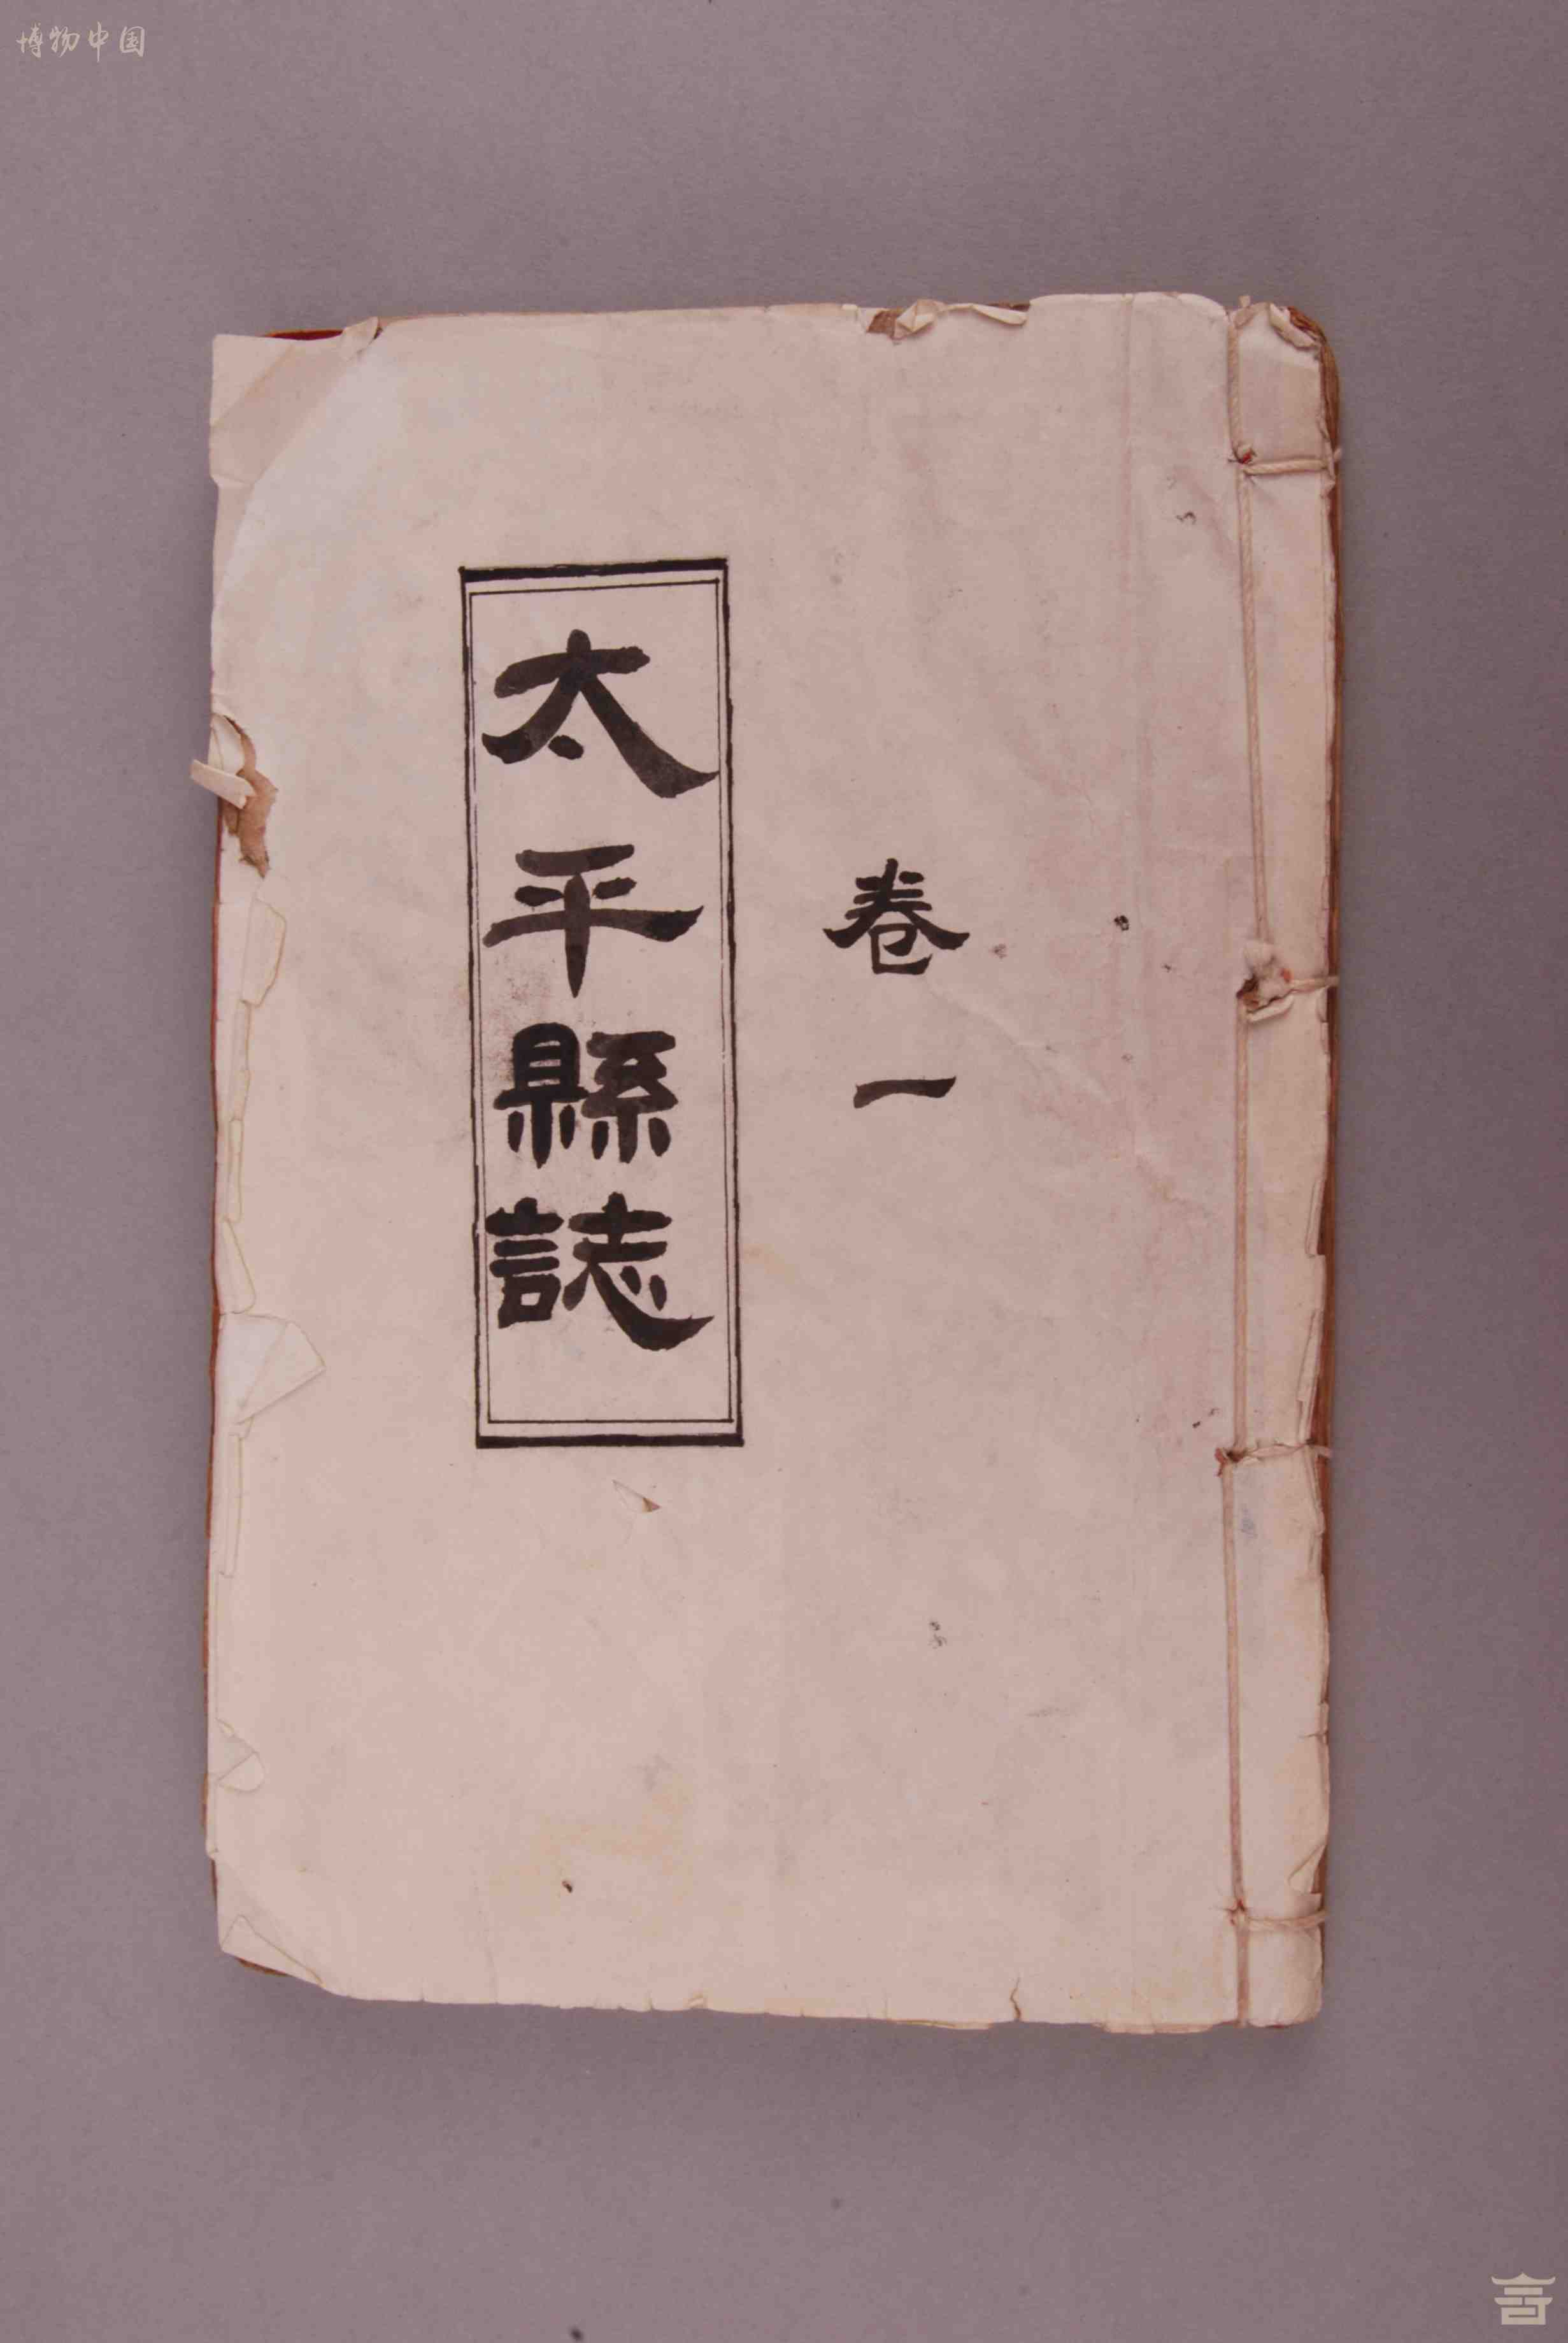 博物中国
太平縣誌
卷一